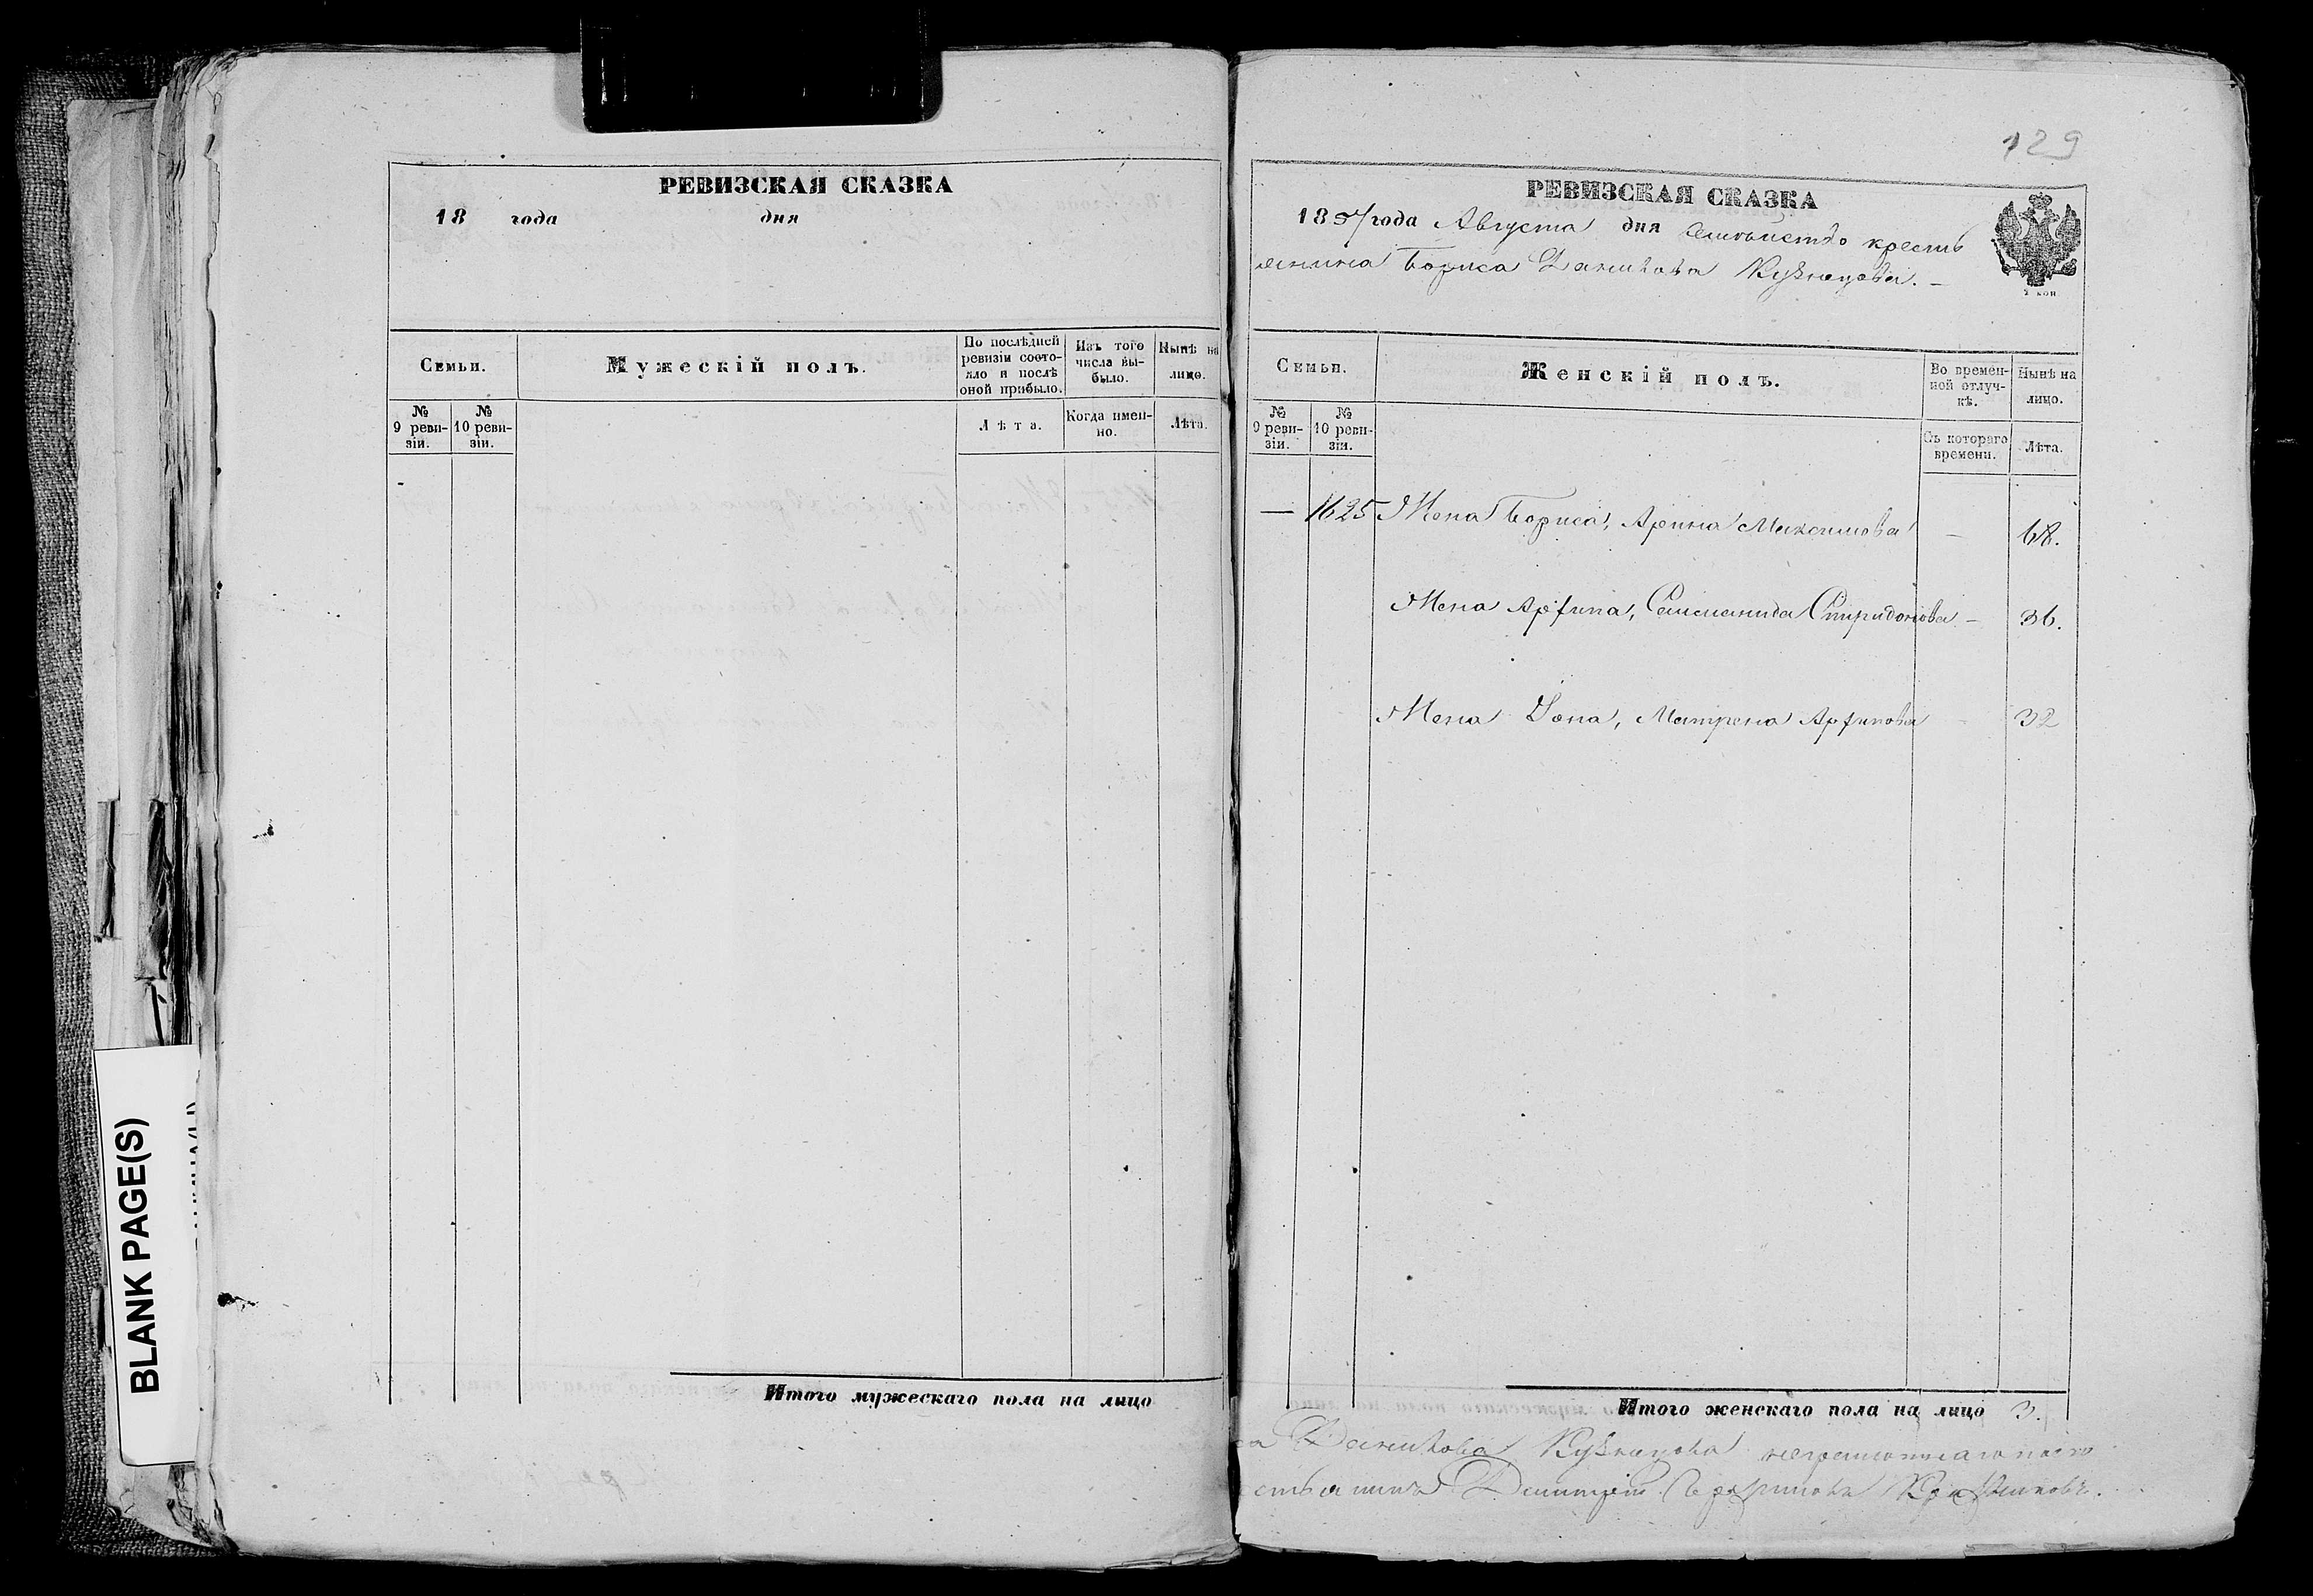 РЕВИЗСКАЯ СКАЗКА
18 года дня
Семьи.
Мужескій полъ.
По послѣдней ревизіи состояло и послѣ оной прибыло.
Изъ того числа выбыло.
Нынѣ на лицо.
№ 9 ревизіи.
№ 10 ревизіи.
Лѣта.
Когда именно.
Лѣта.
Итого мужескаго пола на лицо
BLANK PAGE(S)
129
РЕВИЗСКАЯ СКАЗКА
1857 года Августа дня семѣйство кресть
янина Бориса Данилова Кузнецова. –
2 коп
Семьи.
Женскій полъ.
Во временной отлучкѣ.
Нынѣ на лицо.
№ 9 ревизіи.
№ 10 ревизіи.
Съ котораго времени.
Лѣта.
— 1625 Жена Бориса, Арина Максимова – 68.
Жена Архипа, Спиридонова – 36.
Жена Матрена Архипова – 32
Итого женскаго пола на лицо 3.
Данилова Кузнецова неграмотнаго